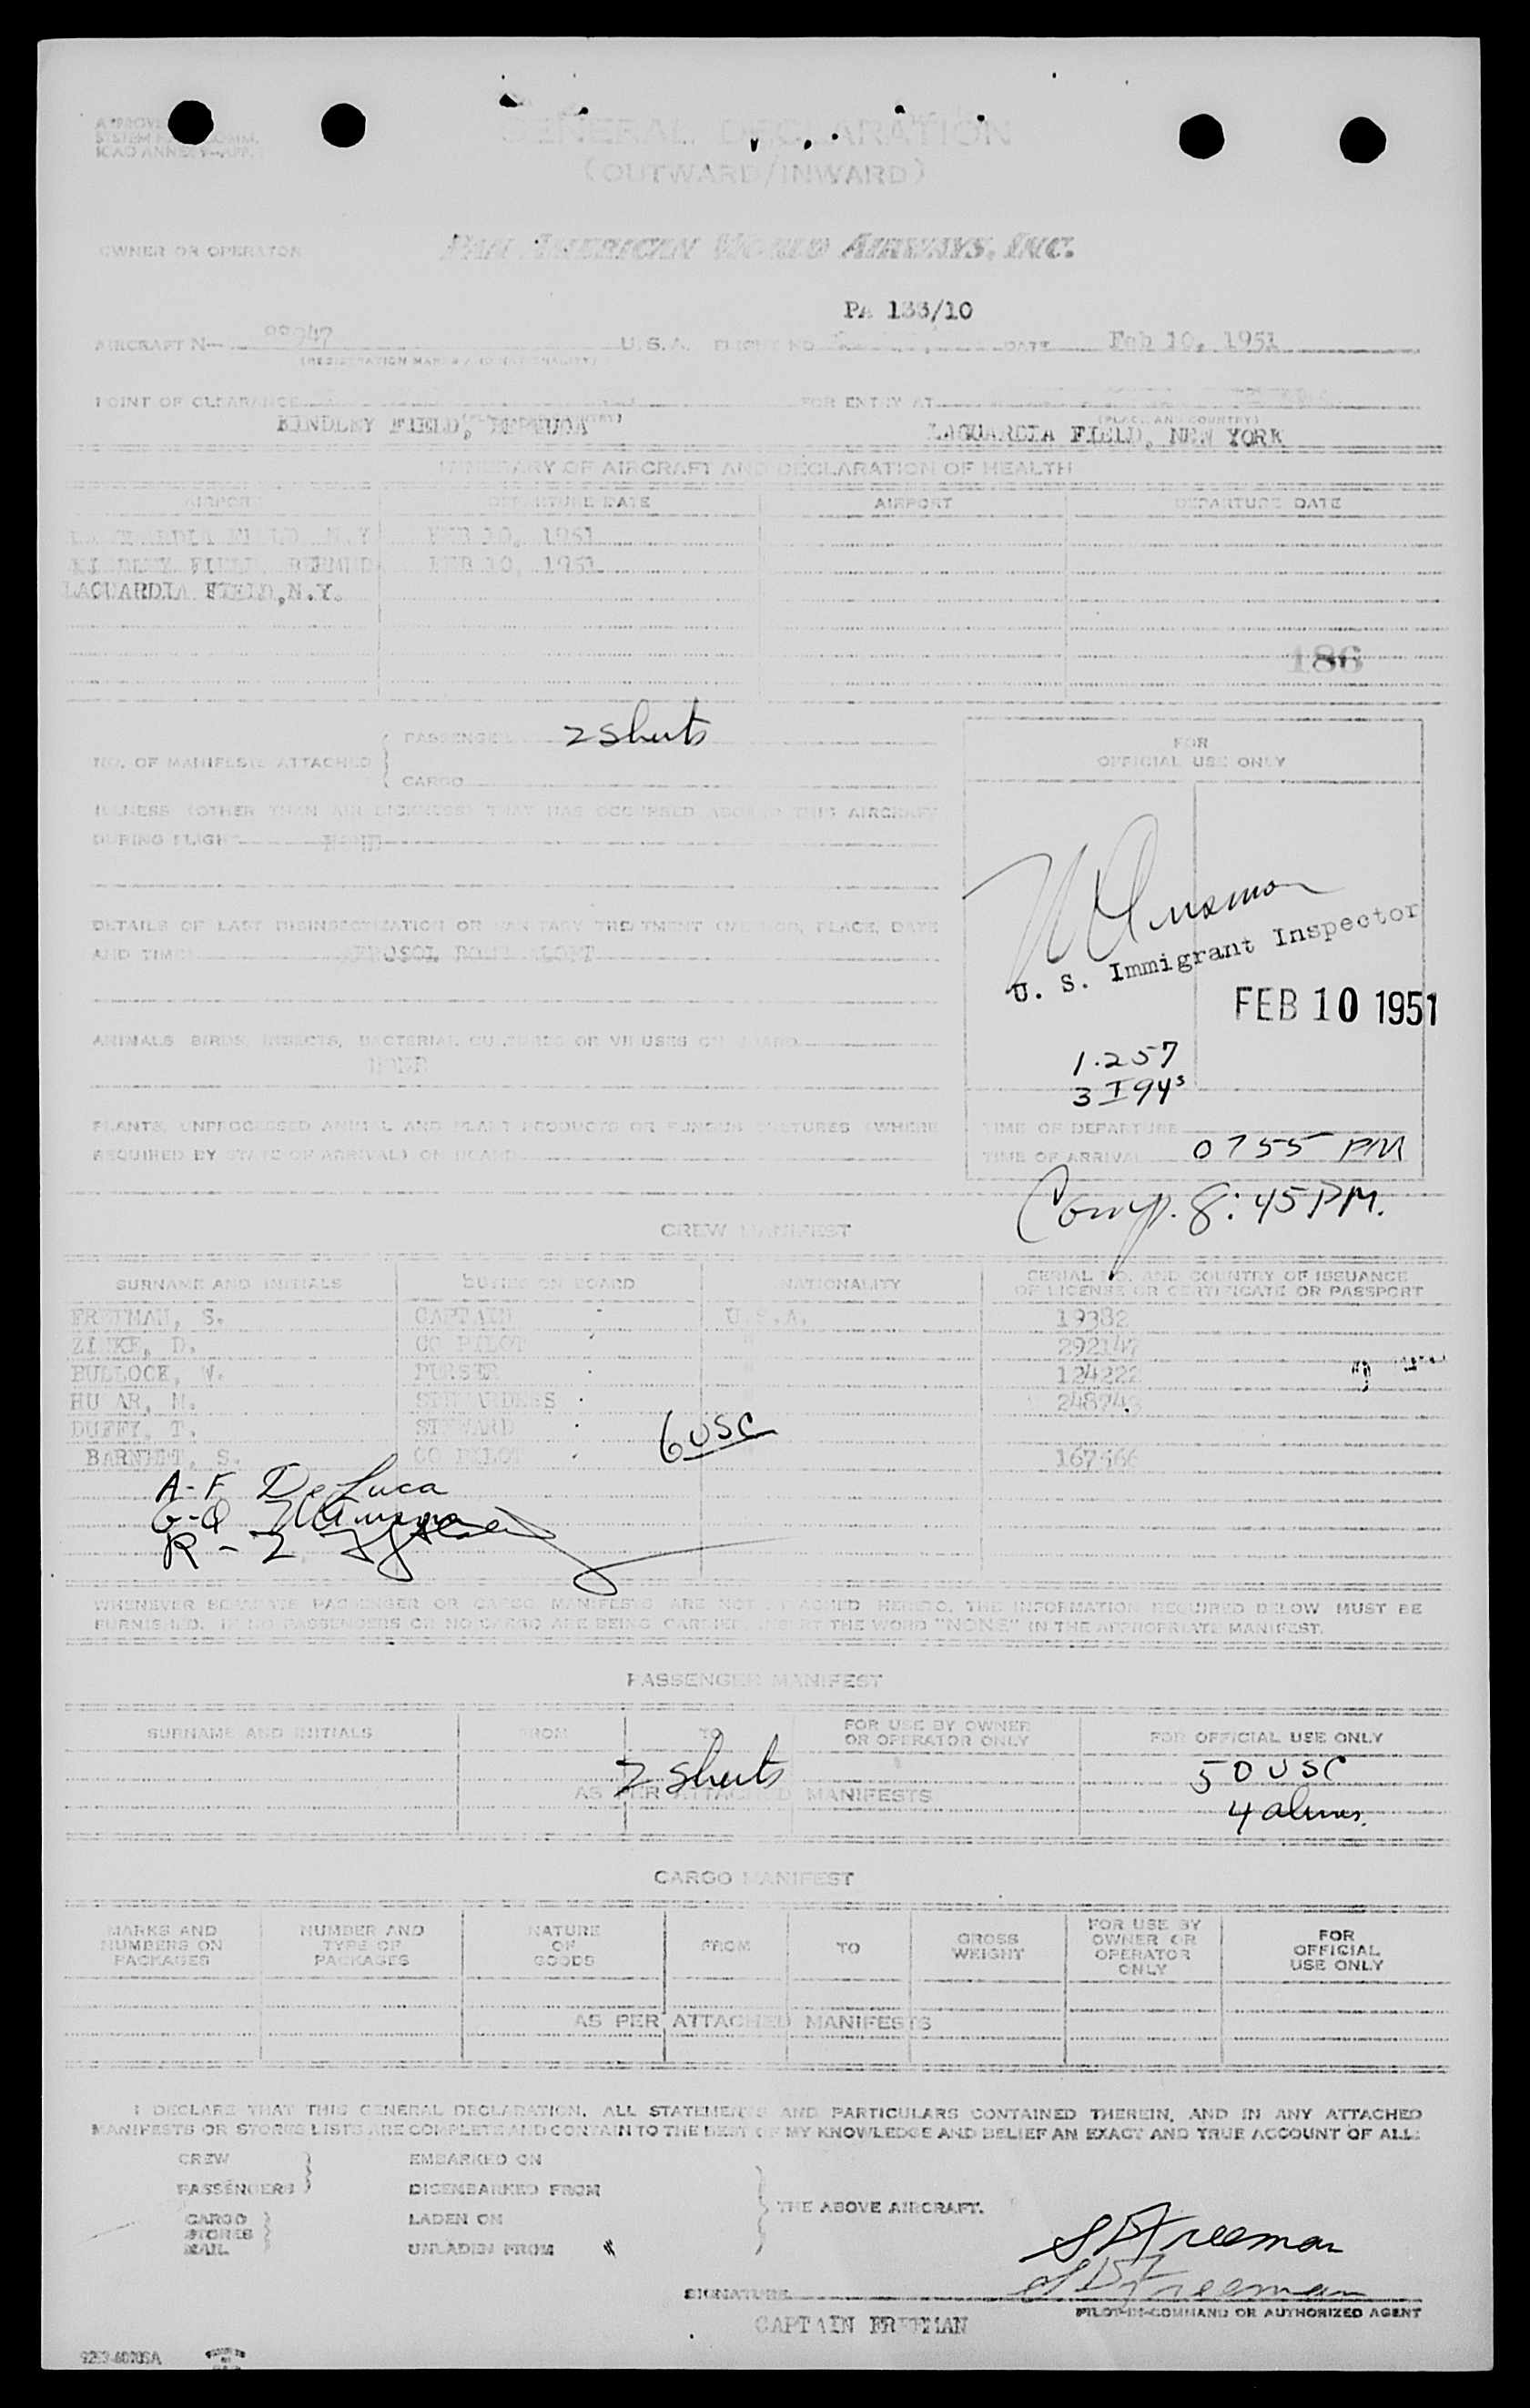 GENERAL DECLARATION
(OUTWARD/INWARD)
OWNER OR OPERATOR
PAN AMERICAN WORLD AIRWAYS, INC.
PA 133/10
AIRCRAFT N-
U. S. A. FLIGHT NO. DATE Feb 10, 1951
(REGISTRATION MARKS AND NATIONALITY)
POINT OF CLEARANCE FOR ENTRY AT
(PLACE AND COUNTRY)
KINDLEY FIELD, BERMUDA LAGUARDIA FIELD, NEW YORK
ITINERARY OF AIRCRAFT AND DECLARATION OF HEALTH
AIRPORT DEPARTURE DATE AIRPORT DEPARTURE DATE
LAGUARDIA FIELD, N.Y. FEB 10, 1951
KINDLEY FIELD, BERMUD FEB 10, 1951
LAGUARDIA FIELD, N.Y.
186
PASSENGER 2 sheets
NO. OF MANIFESTS ATTACHED
CARGO
FOR
OFFICIAL USE ONLY
ILLNESS (OTHER THAN AIR SICKNESS) THAT HAS OCCURRED ABOARD THIS AIRCRAFT
DURING FLIGHT NONE
DETAILS OF LAST DISINSECTIZATION OR SANITARY TREATMENT (METHOD, PLACE, DATE
AND TIME) AEROSOL BOMB ALOFT
U. S. Immigrant Inspector
FEB 10 1951
ANIMALS BIRDS, INSECTS, BACTERIAL CULTURES OR VIRUSES ON BOARD
NONE
1.257
3 I 94s
PLANTS, UNPROCESSED ANIMAL AND PLANT PRODUCTS OR FUNGUS CULTURES (WHERE
REQUIRED BY STATE OF ARRIVAL) ON BOARD
TIME OF DEPARTURE
TIME OF ARRIVAL 0755 PM
Comp. 8:45 PM.
CREW MANIFEST
SURNAME AND INITIALS DUTIES ON BOARD NATIONALITY SERIAL NO. AND COUNTRY OF ISSUANCE
OF LICENSE OR CERTIFICATE OR PASSPORT
FREEMAN, S. CAPTAIN U.S.A. 19382
D. CO PILOT
BULLOCK, W. PURSER
STEWARDESS
DUFFY, T. STEWARD
S. CO PILOT
6 USC
A-F DeLuca
G-Q
R-Z
WHENEVER SEPARATE PASSENGER OR CARGO MANIFESTS ARE NOT ATTACHED HERETO, THE INFORMATION REQUIRED BELOW MUST BE
FURNISHED. IF NO PASSENGERS OR NO CARGO ARE BEING CARRIED INSERT THE WORD "NONE" IN THE APPROPRIATE MANIFEST.
PASSENGER MANIFEST
SURNAME AND INITIALS FROM TO FOR USE BY OWNER
OR OPERATOR ONLY FOR OFFICIAL USE ONLY
2 sheets
50 USC
AS PER ATTACHED MANIFESTS
4 aliens.
CARGO MANIFEST
MARKS AND
NUMBERS ON
PACKAGES
NUMBER AND
TYPE OF
PACKAGES
NATURE
OF
GOODS
FROM
TO
GROSS
WEIGHT
FOR USE BY
OWNER OR
OPERATOR
ONLY
FOR
OFFICIAL
USE ONLY
AS PER ATTACHED MANIFESTS
I DECLARE THAT THIS GENERAL DECLARATION, ALL STATEMENTS AND PARTICULARS CONTAINED THEREIN, AND IN ANY ATTACHED
MANIFESTS OR STORES LISTS ARE COMPLETE AND CONTAIN TO THE BEST OF MY KNOWLEDGE AND BELIEF AN EXACT AND TRUE ACCOUNT OF ALL:
CREW EMBARKED ON
PASSENGERS DISEMBARKED FROM
THE ABOVE AIRCRAFT.
CARGO LADEN ON
STORES
MAIL UNLADEN FROM
S D Freeman
S D Freeman
SIGNATURE
PILOT-IN-COMMAND OR AUTHORIZED AGENT
CAPTAIN FREEMAN